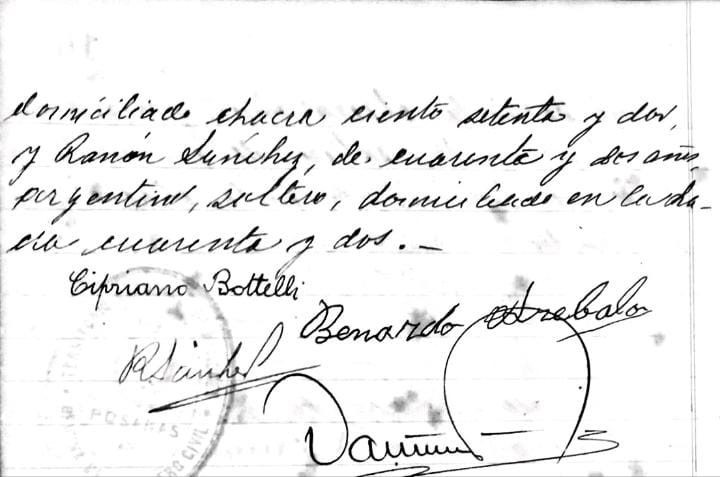 domiciliado chacra ciento setenta y dos,
y Ramón Sánchez, de cuarenta y dos años,
argentino, soltero, domiciliado en la cha-
cra cuarenta y dos. —
Cipriano Bottelli
Benardo Arebalo
R Sánchez
POSADAS
CIVIL